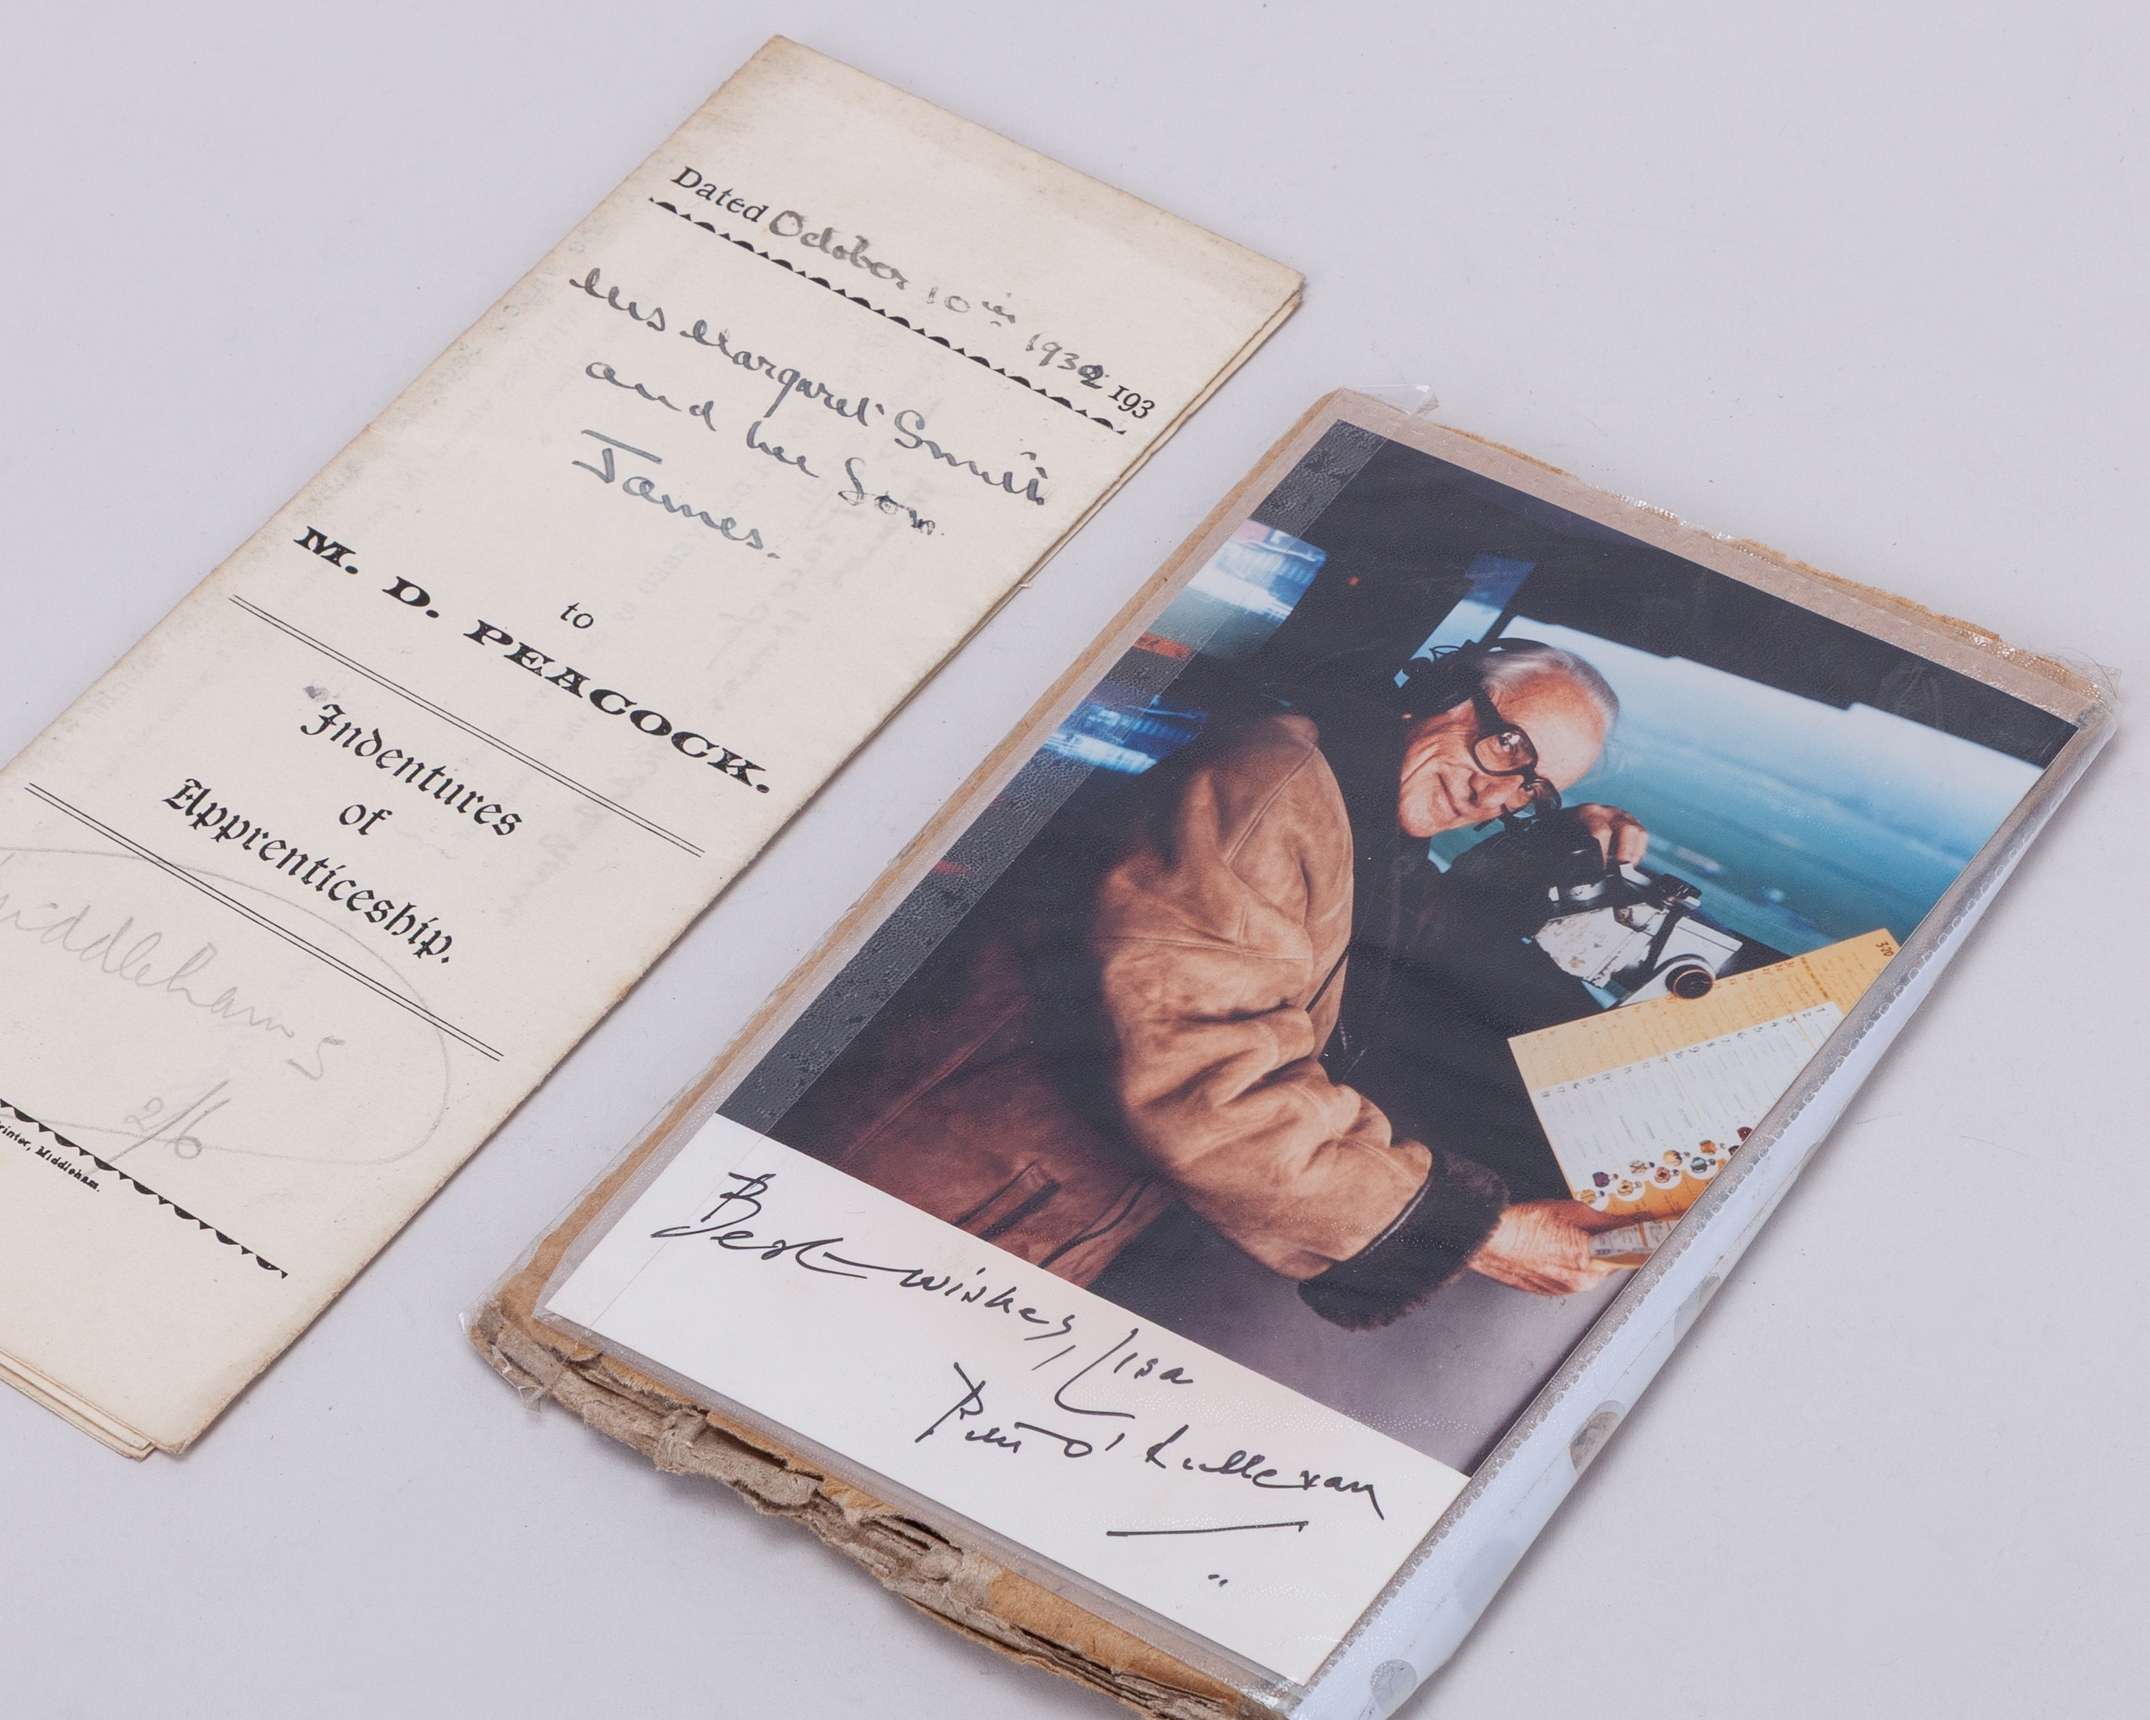 Dated October 10th 1932 193
Mrs Margaret Smith
and her Son
James.
to
M. D. PEACOCK.
Indentures
of
Apprenticeship.
Middleham
5
2/6
Printer, Middleham.
Best wishes, Lisa
Peter O'Sullevan
3.20